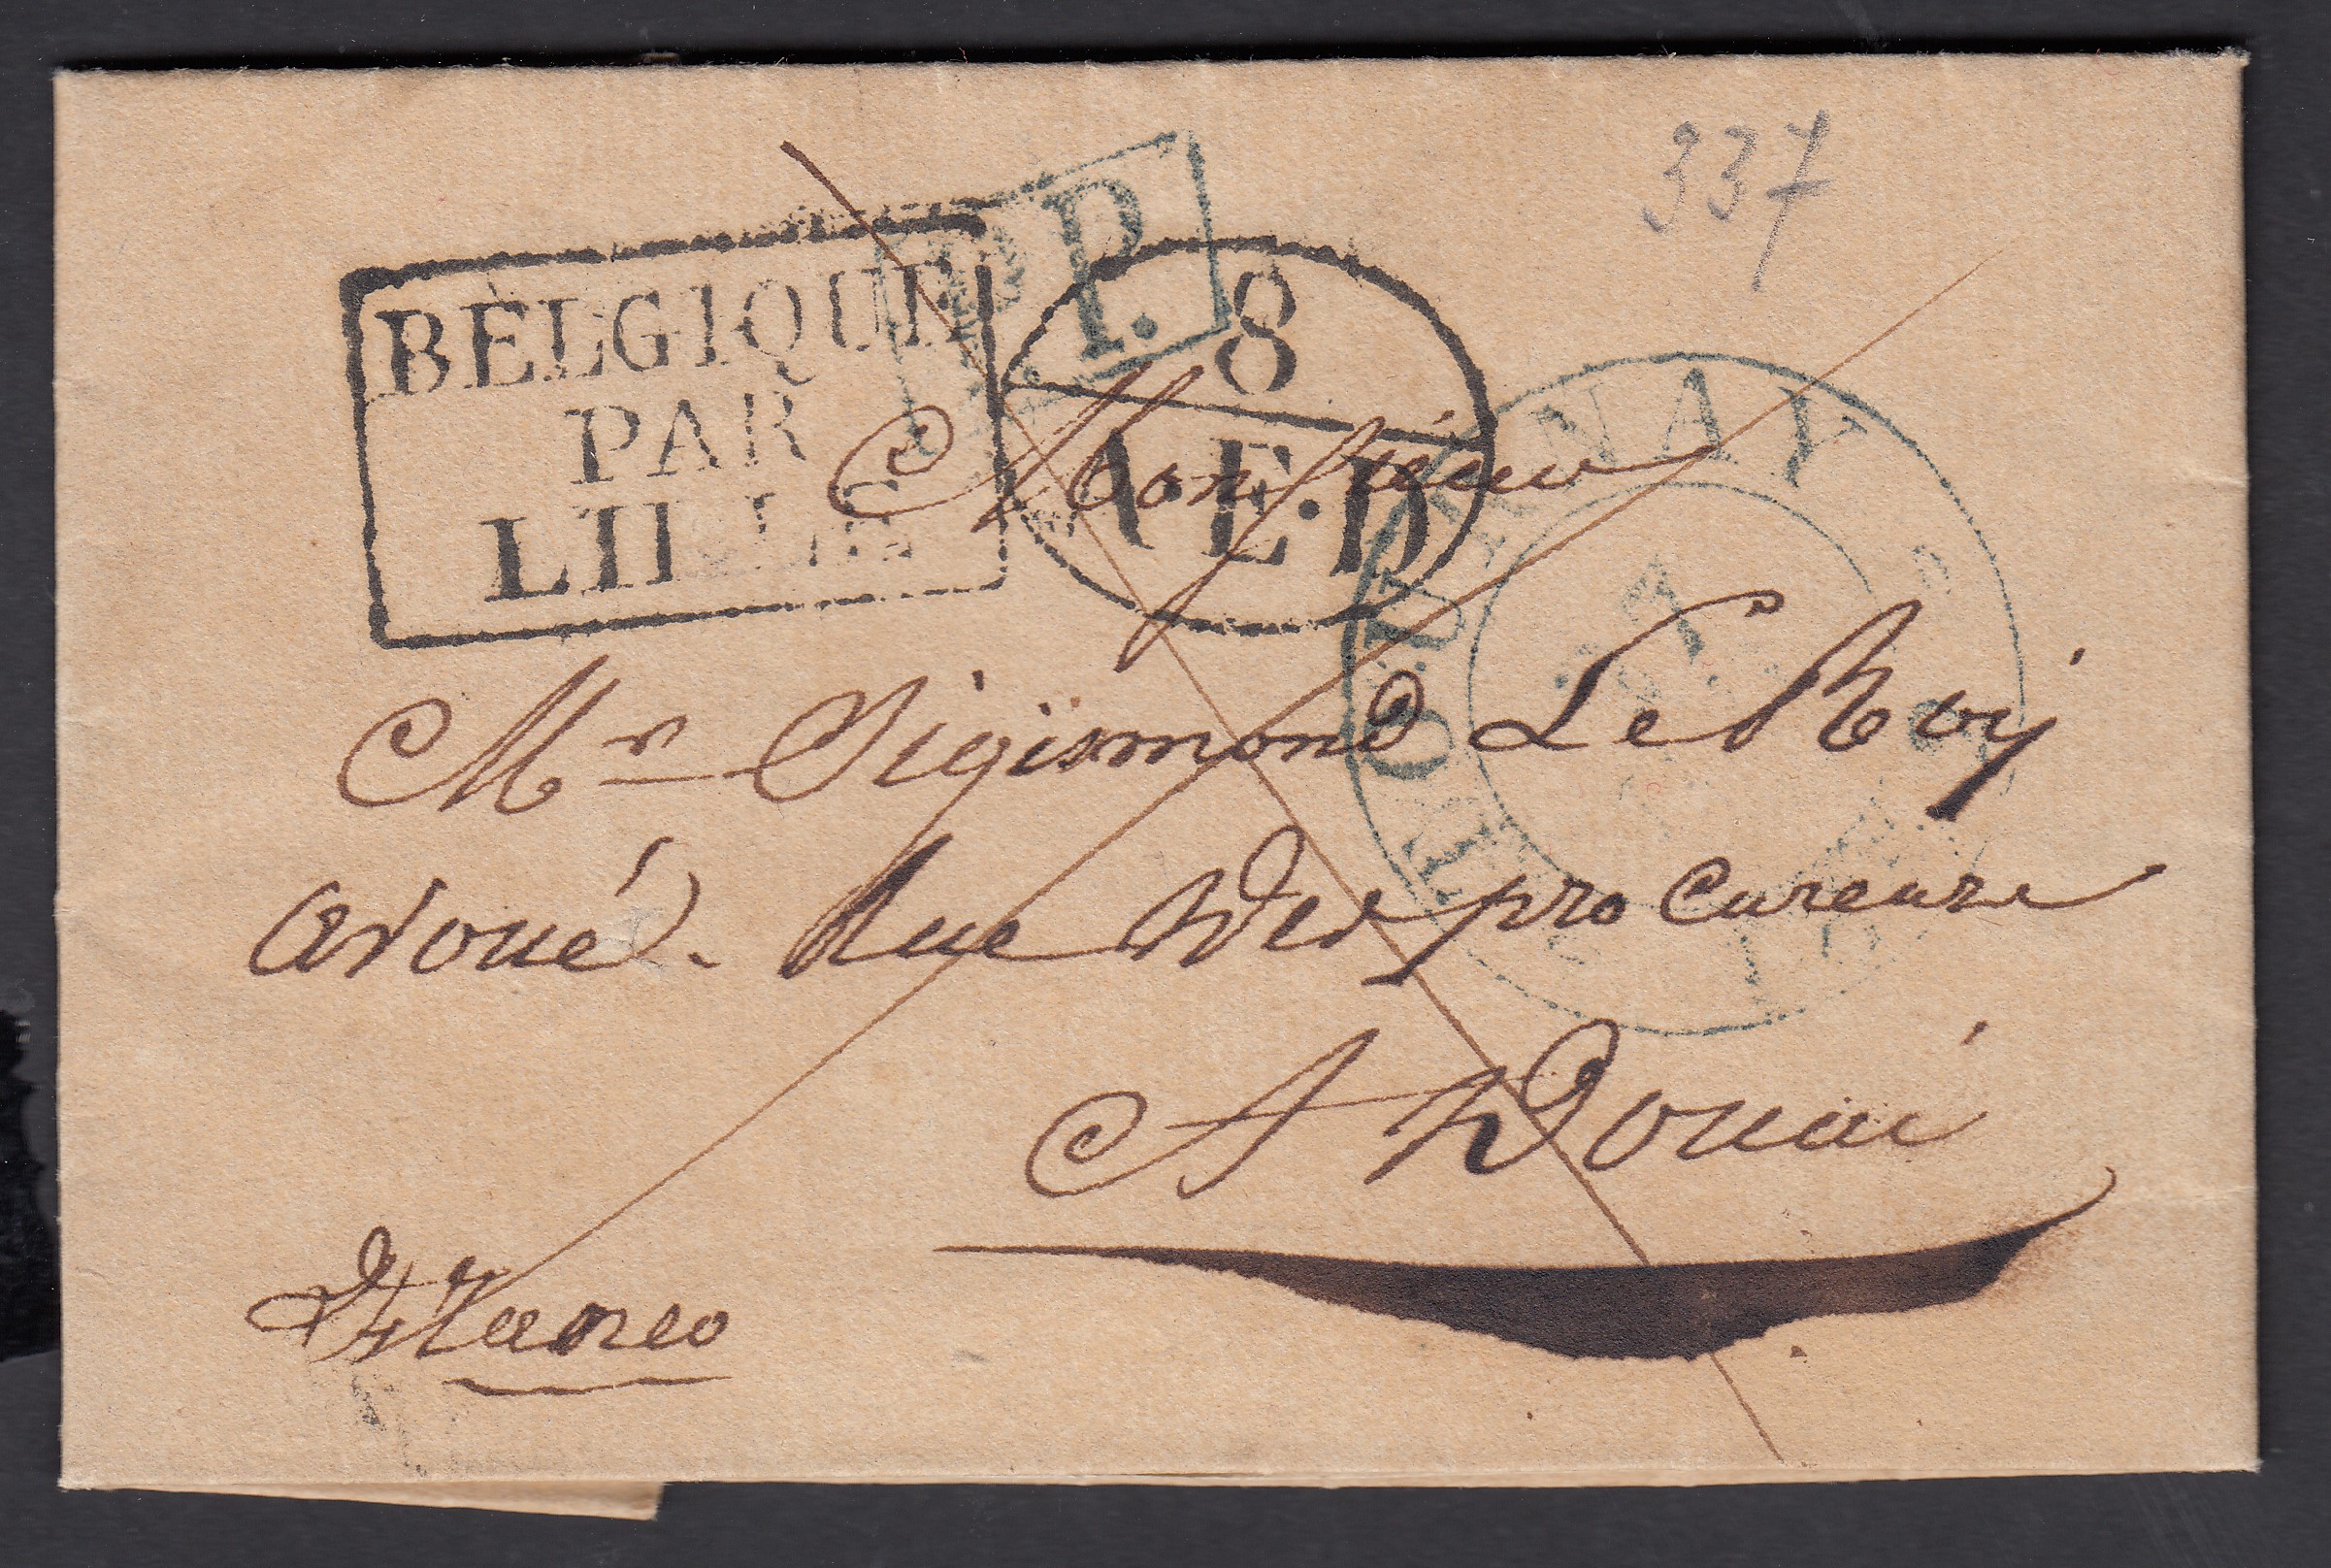 337
P.P.
BELGIQUE
PAR
LILLE
8
A.E.D
TOURNAY
Monsieur
Mr Sigismond Le Roy
avoué. Rue des procureurs
A Douai
franco